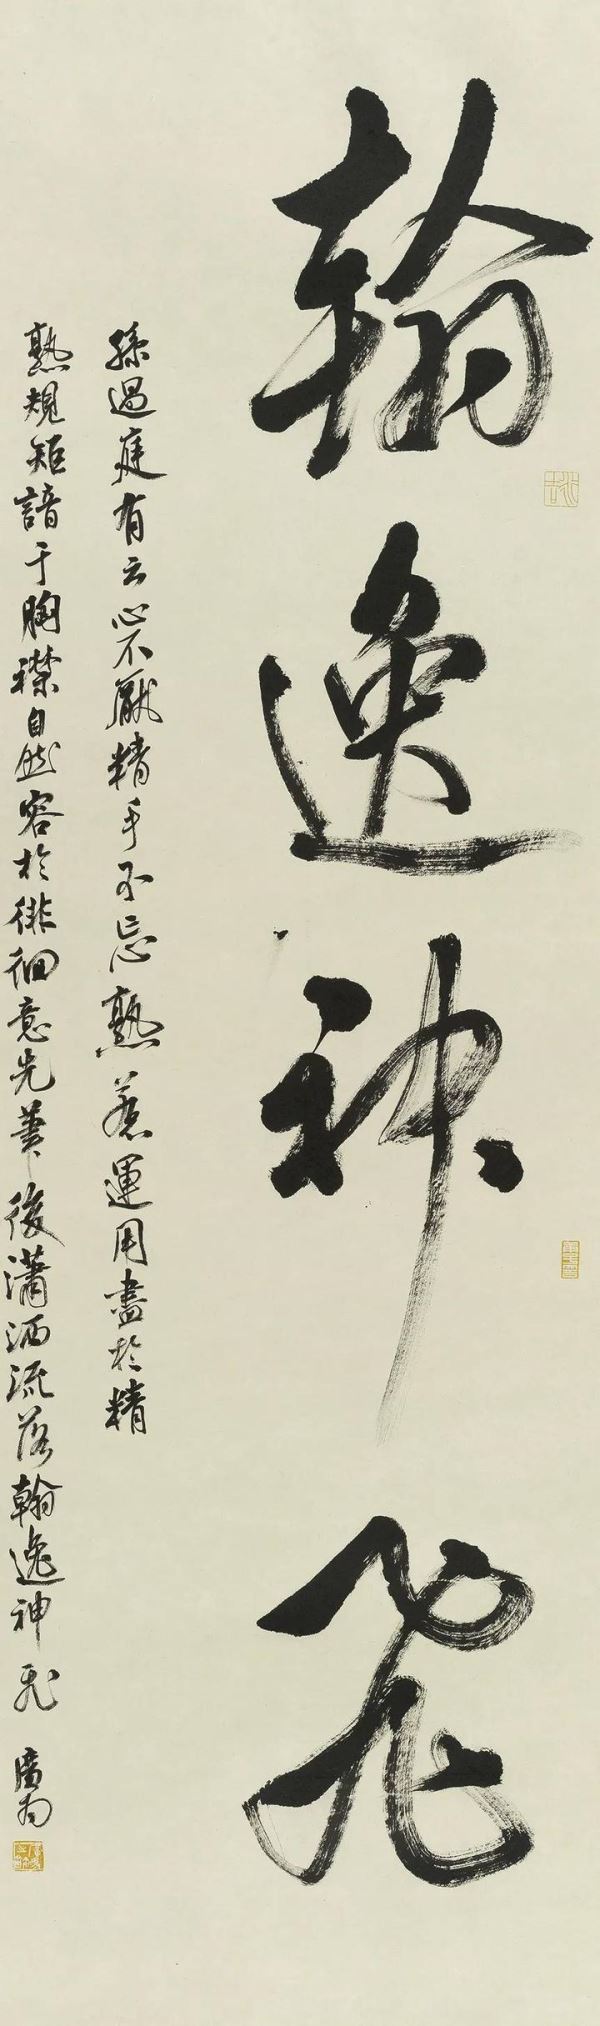 翰逸神飛
孫過庭有云心不厭精手不忘熟若運用盡於精
熟規矩諳于胸襟自然容於徘徊意先筆後瀟洒流落翰逸神飛 廣為